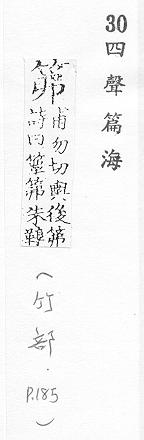 30四聲篇海
笰甫勿切輿後笰
詩曰簟笰朱鞹
(竹部·P.185)